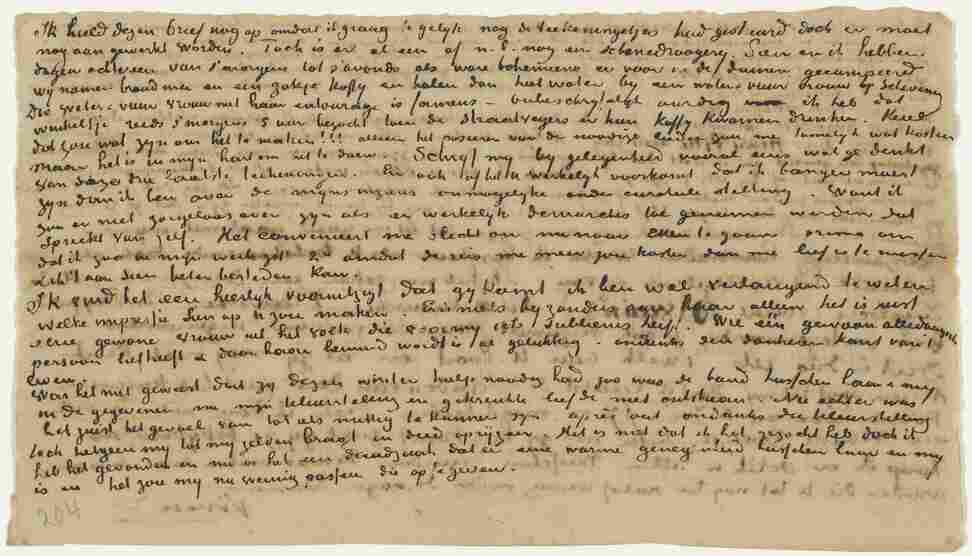 Ik hield dezen brief nog op omdat ik graag te gelijk nog de teekeningetjes had gestuurd doch er moet
nog aan gewerkt worden. Toch is er al een af n.l. nog een Schenedroogerij. Sien en ik hebben
dagen achtereen van s'morgens tot s'avonds als ware bohemiens er voor in de duinen gecampeerd
wij namen brood mee en een zakje koffy en halen dan heet water by een water & vuur vrouw op Scheveng
Die water & vuur vrouw met haar entourage is fameus – onbeschryfelyk aardig ik heb dat
winkeltje reeds s'morgens 5 uur bezocht toen de straatvegers er hun koffy kwamen drinken. Kerel
dat zou wat zyn om het te maken!!! alleen het poseeren van de noodige lieden zou me tamelyk wat kosten
maar het is in myn hart om het te doen. Schryf my by gelegenheid vooral eens wat ge denkt
van deze drie laatste teekeningen. En ook of het U werkelyk voorkomt dat ik banger moest
zyn dan ik ben over de myns inziens onmogelyke onder curateele stelling. Want ik
zou er niet zorgeloos over zyn als er werkelyk demarches toe genomen werden dat
spreekt van zelf. Het convenieert me slecht om nu naar Etten te gaan primo om
dat ik zoo in myn werk zit 2o omdat de reis me meer zou kosten dan me lief is te meer
ik 't aan Sien beter besteden kan.
Ik vind het een heerlyk vooruitzigt dat gy komt ik ben wel verlangend te weten
welke impressie Sien op U zou maken. Er is niets byzonders aan haar alleen het is eene
gewone vrouw uit het volk die voor my iets sublimes heeft. Wie één gewoon alledaagsch
persoon liefheeft & door haar bemind wordt is al gelukkig – ondanks den donkeren kant van 't
leven.
Was het niet geweest dat zy dezen winter hulp noodig had zoo was de band tusschen haar & my
in de gegevenen na myn teleurstelling en gekrenkte liefde niet ontstaan. Nu echter was
het juist het gevoel van tot iets nuttig te kunnen zyn après tout ondanks die teleurstelling
toch hetgeen my tot my zelven bragt en deed opryzen. Het is niet dat ik het gezocht heb doch ik
heb het gevonden en nu is het een daadzaak dat er eene warme genegenheid tusschen haar en my
is en het zou my nu weinig passen die op te geven.
204